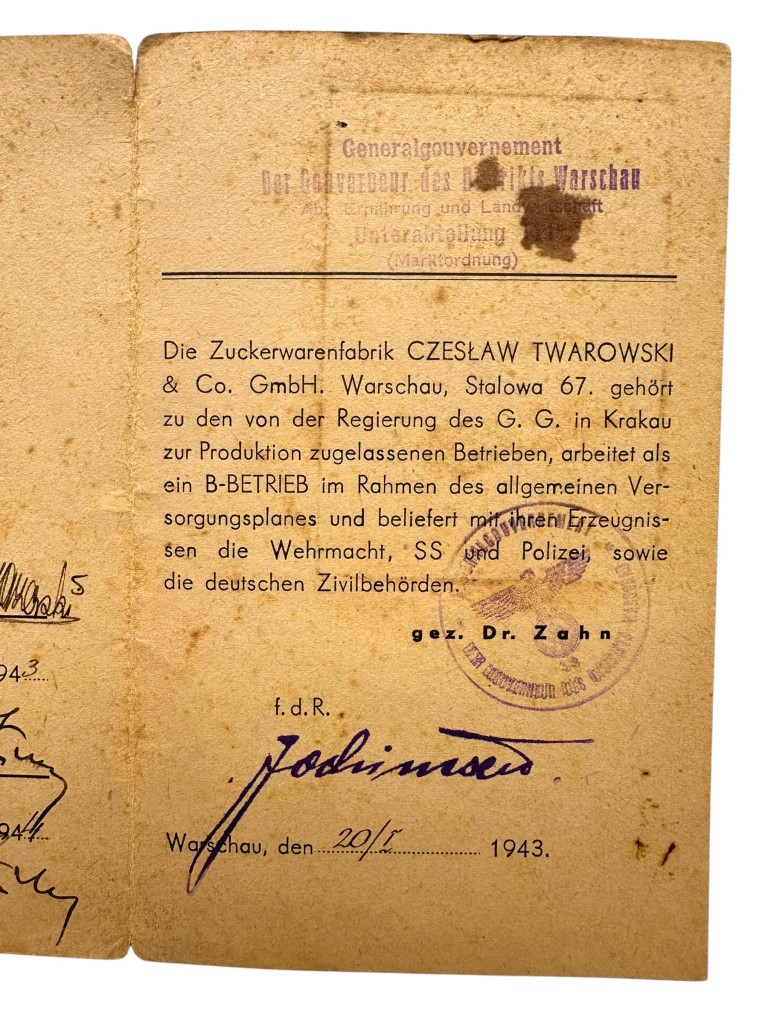 Generalgouvernement
Der Gouverneur des Distrikts Warschau
Abt. Ernährung und Landwirtschaft
Unterabteilung
(Marktordnung)
Die Zuckerwarenfabrik CZESŁAW TWAROWSKI
& Co. GmbH. Warschau, Stalowa 67. gehört
zu den von der Regierung des G. G. in Krakau
zur Produktion zugelassenen Betrieben, arbeitet als
ein B-BETRIEB im Rahmen des allgemeinen Ver-
sorgungsplanes und beliefert mit ihren Erzeugnis-
sen die Wehrmacht, SS und Polizei, sowie
die deutschen Zivilbehörden.
gez. Dr. Zahn
GENERALGOUVERNEMENT
DER GOUVERNEUR DES DISTRIKTS
f.d.R.
Warschau, den 20/I 1943.
943
944